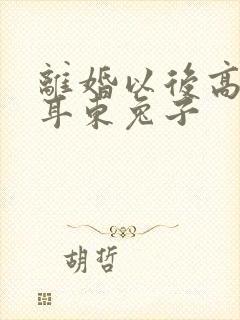 離婚以後高
耳東兔子
胡哲